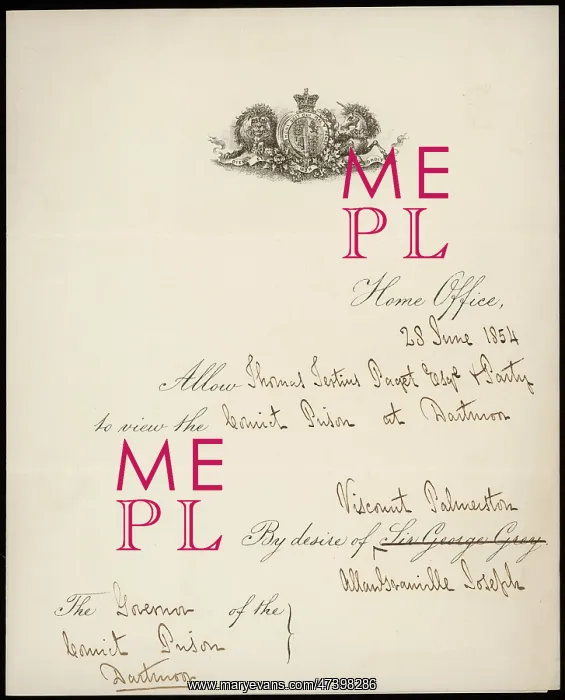 ME
PL
Home Office,
28 June 1854
Allow Thomas Tertius Paget Esqre & Party
to view the Convict Prison at Dartmoor
ME
PL
Viscount Palmerston
By desire of Sir George Grey
The Governor of the
Convict Prison
Dartmoor
www.maryevans.com/47398286